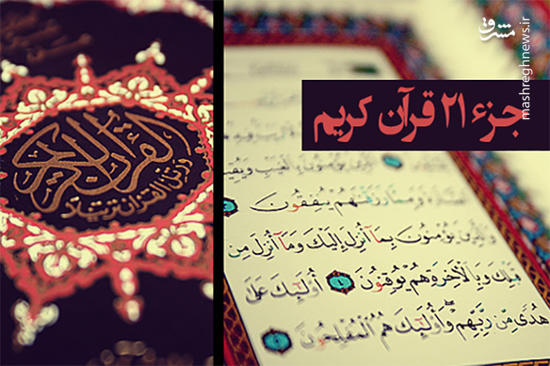 مشرق
mashreghnews.ir
جزء ۲۱ قرآن کریم
القرآن الكريم
ورتل القرآن ترتيلا
وَمِمَّا رَزَقْنَاهُمْ يُنْفِقُونَ
وَالَّذِينَ يُؤْمِنُونَ بِمَا أُنْزِلَ إِلَيْكَ وَمَا أُنْزِلَ مِنْ
قَبْلِكَ وَبِالْآخِرَةِ هُمْ يُوقِنُونَ ٤ أُولَئِكَ عَلَى
هُدًى مِنْ رَبِّهِمْ وَأُولَئِكَ هُمُ الْمُفْلِحُونَ ٥